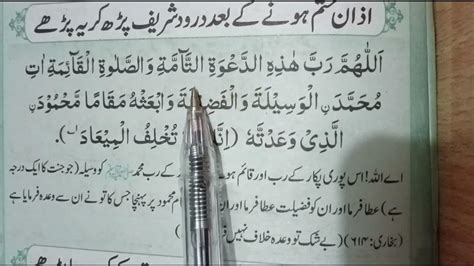 اذان ختم ہونے کے بعد درود شریف پڑھ کر یہ پڑھے
اَللّٰهُمَّ رَبَّ هٰذِهِ الدَّعْوَةِ التَّآمَّةِ وَالصَّلٰوةِ الْقَآئِمَةِ اٰتِ
مُحَمَّدَنِ الْوَسِيْلَةَ وَالْفَضِيْلَةَ وَابْعَثْهُ مَقَامًا مَّحْمُوْدَنِ
الَّذِيْ وَعَدْتَّهٗ (تُخْلِفُ الْمِيْعَادَ).
اے اللہ! اس پوری پکار کے رب اور قائم ہو کے رب محمد کو وسیلہ (جو جنت کا ایک درجہ
ہے) عطا فرما اور ان کو فضیلت عطا فرما اور ان کو محمود پر پہنچا جس کا تو نے ان سے وعدہ فرمایا ہے
(بخاری: ۶۱۴) (بے شک تو وعدہ خلاف نہیں